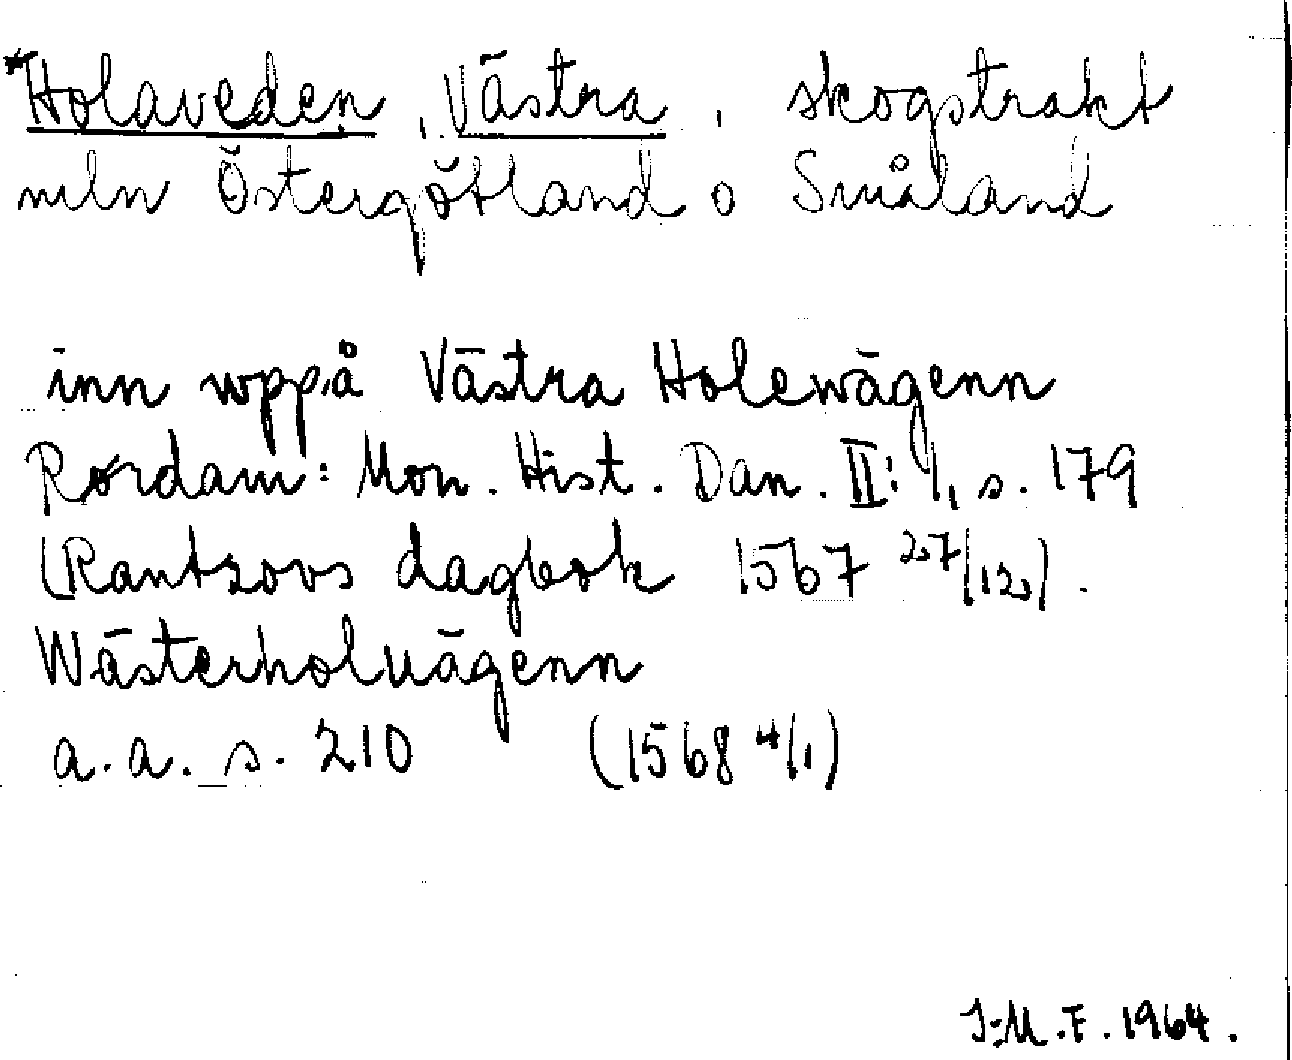 *Holaveden, Västra, skogstrakt
mln Östergötland o Småland
inn wppå Västra Holewägenn
Rørdam: Mon. Hist. Dan. II:1, s. 179
(Rantzovs dagbok 1567 27/12).
Wästerholuägenn
a.a. s. 210 (1568 4/1)
I-M.F. 1964.